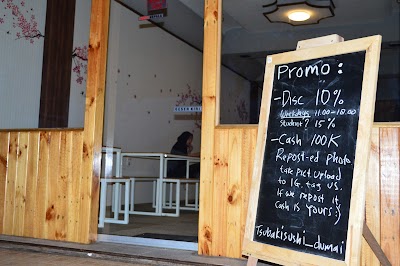 Promo :
- Disc 10%
Weekdays 11.00-18.00
Student? 15%
- Cash 100K
Repost-ed photo
take pict, upload
to IG, tag us.
If we repost it
Cash is Yours :)
Tsubakisushi_dumai